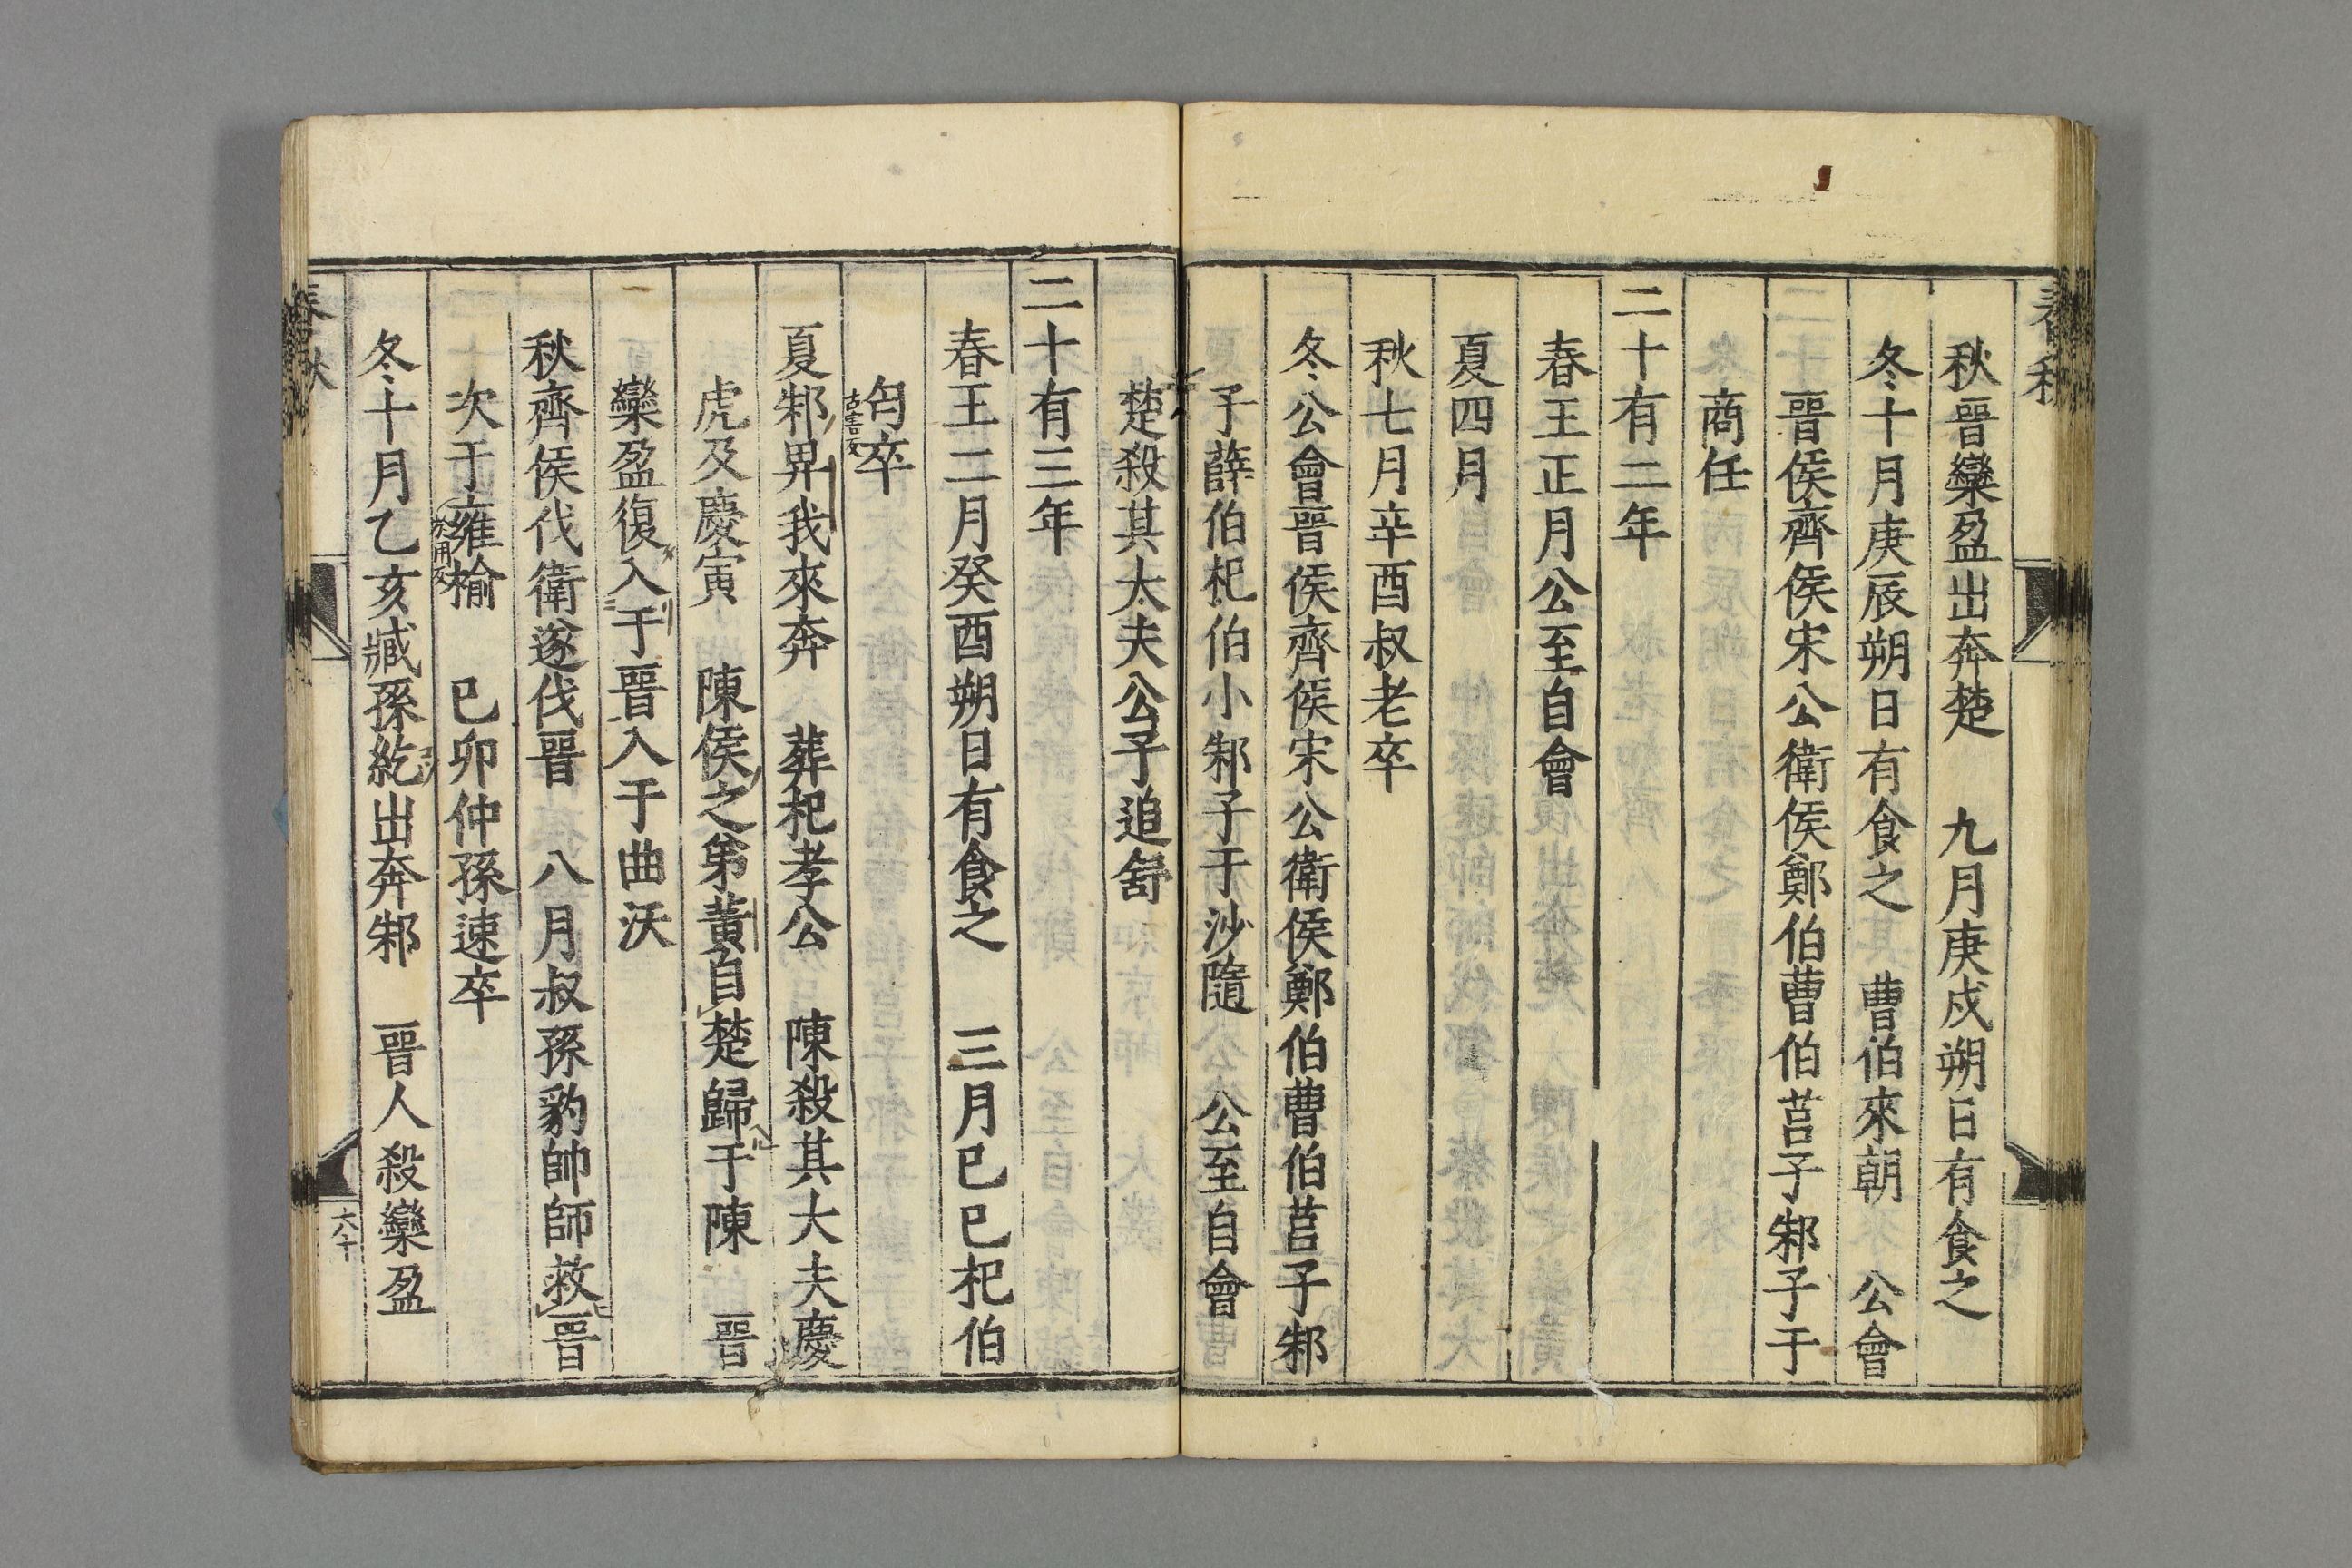 春秋
秋晉欒盈出奔楚　九月庚戌朔日有食之
冬十月庚辰朔日有食之　曹伯來朝　公會
晉侯齊侯宋公衛侯鄭伯曹伯莒子邾子于
商任
二十有二年
春王正月公至自會
夏四月
秋七月辛酉叔老卒
冬公會晉侯齊侯宋公衛侯鄭伯曹伯莒子邾
子薛伯杞伯小邾子于沙隨　公至自會
楚殺其大夫公子追舒
二十有三年
春王二月癸酉朔日有食之　三月己巳杞伯
匄卒
古害反
夏邾畀我來奔　葬杞孝公　陳殺其大夫慶
虎及慶寅　陳侯之弟黃自楚歸于陳　晉
欒盈復入于晉入于曲沃
秋齊侯伐衛遂伐晉　八月叔孫豹帥師救晉
次于雍榆　己卯仲孫速卒
於用反
冬十月乙亥臧孫紇出奔邾　晉人殺欒盈
春秋
六十